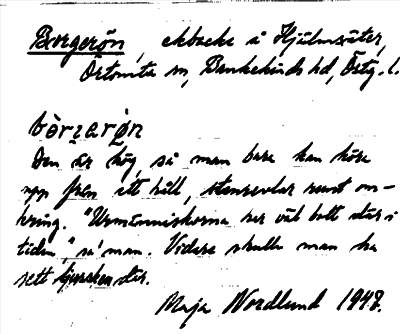 Borgerön, ekbacke å Hjälmsäter,
Örtomta sn, Bankekinds hd, Östg. l.
bòrjarø̀n
Den är hög, så man bara kan köra
upp från ett håll, stensvaler runt om-
kring. "Urmänniskorna har väl bott där i
tiden," sa' man. Vidare skulle man ha
sett ljussken där.
Maja Nordlund 1948.